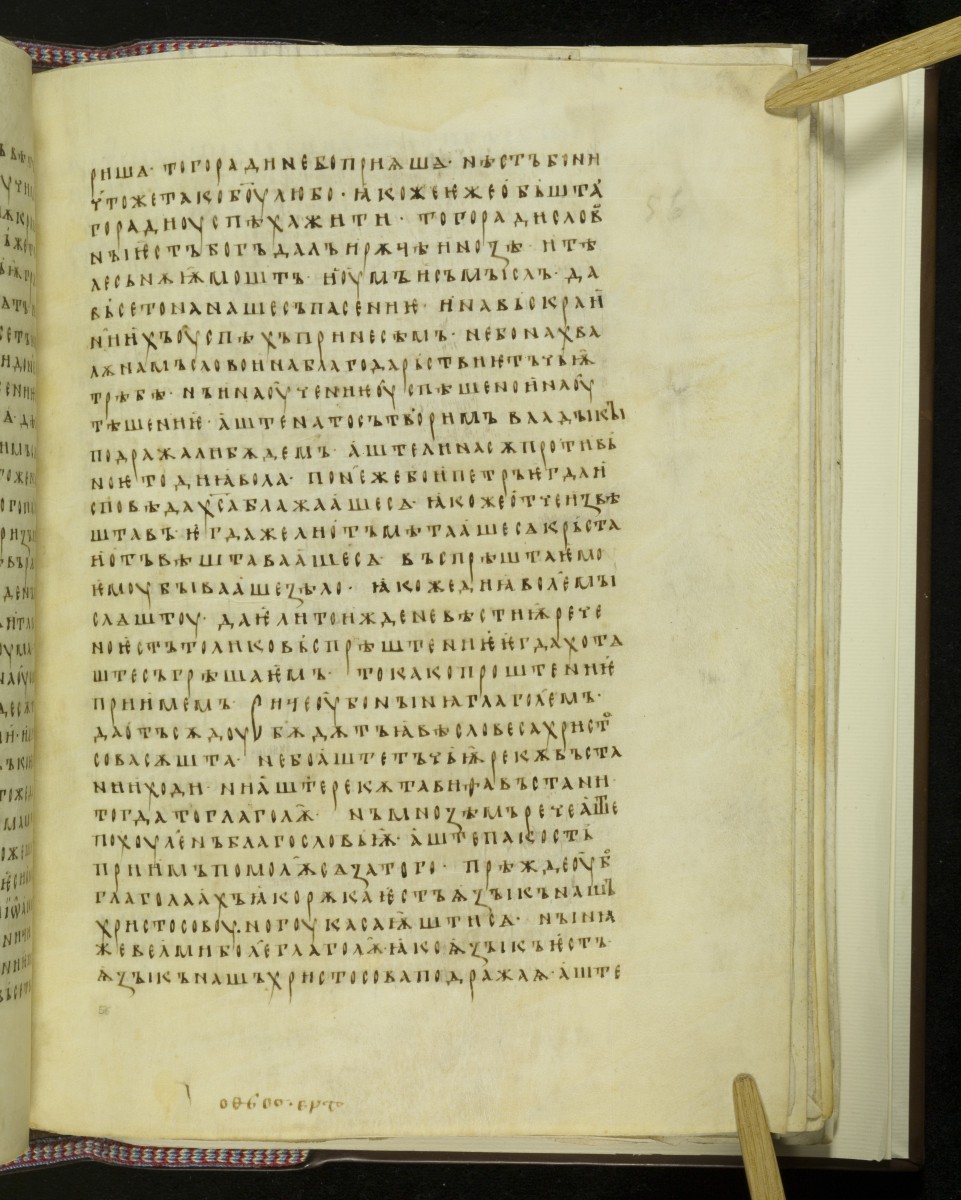 риша· тогорадинебоприѩша· нѣстъбони
чтожетакобоулюбо· ꙗкожеѥжеобьшта
горадиоуспѣхажити· тогорадислов
ныѥстъбогъдалъирѫчѣиноꙁѣ· итѣ
лесьнѫѭмошть· иоумъисъмыслъ· да
вьсетонанашесъпасениѥ· инавьскраи
нихъоуспѣхъпринесѣмъ· небонахва
лѫнамъсловоинаблагодарьствиѥтъчьѭ
трѣбѣ· нъинаоучениѥоуспѣшеноинаоу
тѣшениѥ· аштенатосътворимъ владыкы
подражалибѫдемъ· аштелинасѫпротивь
ноѥтодиꙗвола· понежебоипетръѥгдаи
споведахсаблажаашеса· ꙗкожеотчеиꙁвѣ
штавъ· ѥгдажелиотъмѣтаашесакрьста
иотъвѣштаваашеса въспрѣштаѥмо
ѥмоубываашеꙁѣло· ꙗкожедиꙗволѣмы
слаштоу· даѥлитоижденевѣстиѭрече
ноѥстътоликовьспрѣштениѥѥгдахота
штесъгрѣшаѥмъ· токакопроштениѥ
приимемъ· ничеоубонынꙗглаголемъ·
даотъсѫдоубѫдѫтъꙗвѣсловесахрист
совасѫшта· небоаштетъчьѭрекѫвъста
ниходи· ниаштерекѫтавифавъстани·
тогдатоглаголѭ нъмноꙁѣмъречеаште
похоуленъблагословьѭ· аштепакость
приимъпомолѭсаꙁатого· прѣждеоуб
глаголаахъꙗкорѫкаѥстъѧꙁыкънашъ
христосовоу·ногоукасаѭштиса· нынꙗ
жевелмиболеглаголѭꙗкоѧꙁыкъѥстъ·
ѧꙁыкънашъхристосоваподражаѧ· аште